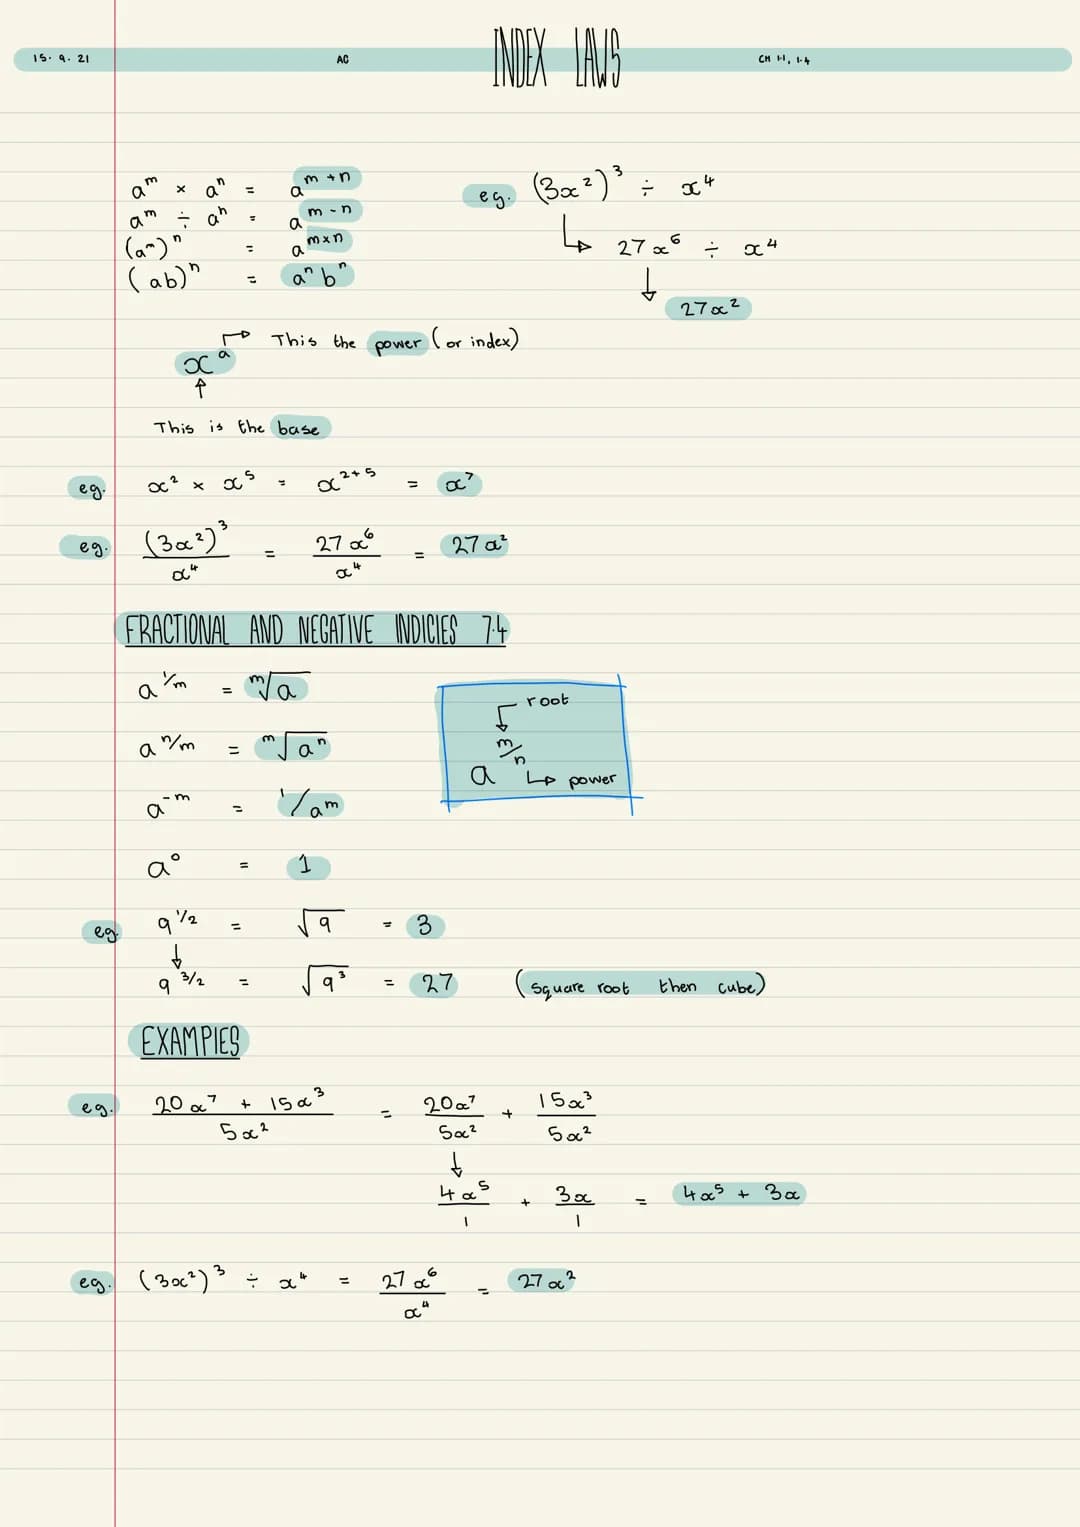 INDEX LAWS
15. 9. 21 AC CH 1.1, 1.4
a^m × a^n = a^(m+n)
a^m ÷ a^n = a^(m-n)
(a^m)^n = a^(m×n)
(ab)^n = a^n b^n
eg. (3x²)³ ÷ x⁴
27x⁶ ÷ x⁴
27x²
This the power (or index)
x^a
This is the base
eg. x² × x⁵ = x^(2+5) = x⁷
eg. (3x²)³/x⁴ = 27x⁶/x⁴ = 27x²
FRACTIONAL AND NEGATIVE INDICIES 7.4
a^(1/m) = ^m√a
a^(n/m) = ^m√a^n
a^(-m) = 1/a^m
a⁰ = 1
root
a^(m/n)
power
eg. 9^(1/2) = √9 = 3
9^(3/2) = √9³ = 27 (square root then cube)
EXAMPLES
eg. (20x⁷ + 15x³)/5x² = 20x⁷/5x² + 15x³/5x²
4x⁵/1 + 3x/1 = 4x⁵ + 3x
eg. (3x²)³ ÷ x⁴ = 27x⁶/x⁴ = 27x²